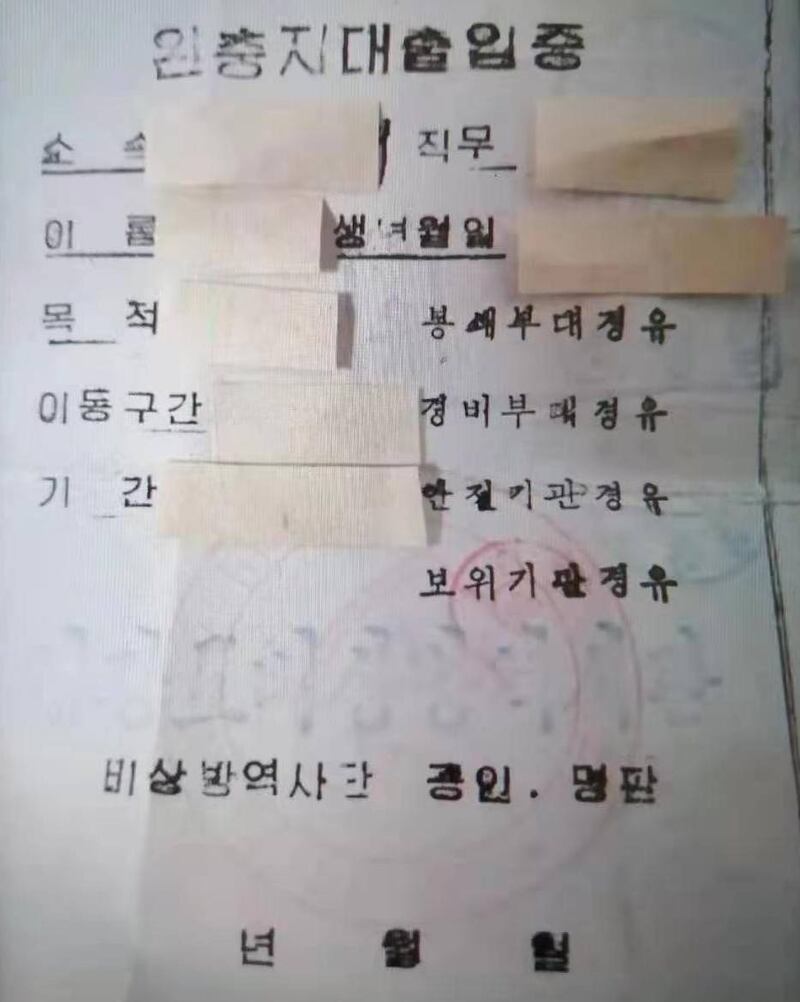 완충지대출입증
소 속 직무
이 름 생년월일
목 적 봉쇄부대경유
이동구간 경비부대경유
기 간 안전기관경유
보위기관경유
비상방역사단 공인. 명판
년 월 일